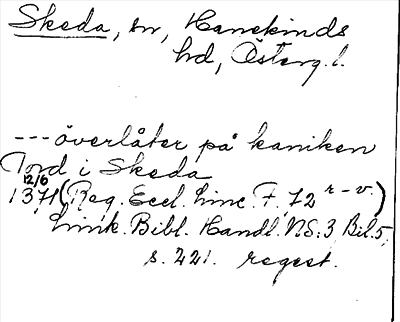 Skeda, sn, Hanekinds
hd, Österg. l.
--- överlåter på kaniken
Tord i Skeda
12/6
1371 (Reg. Eccl. Linc. F. 72 r-v.)
Link. Bibl. Handl. NS: 3 Bil. 5,
s. 221. regest.